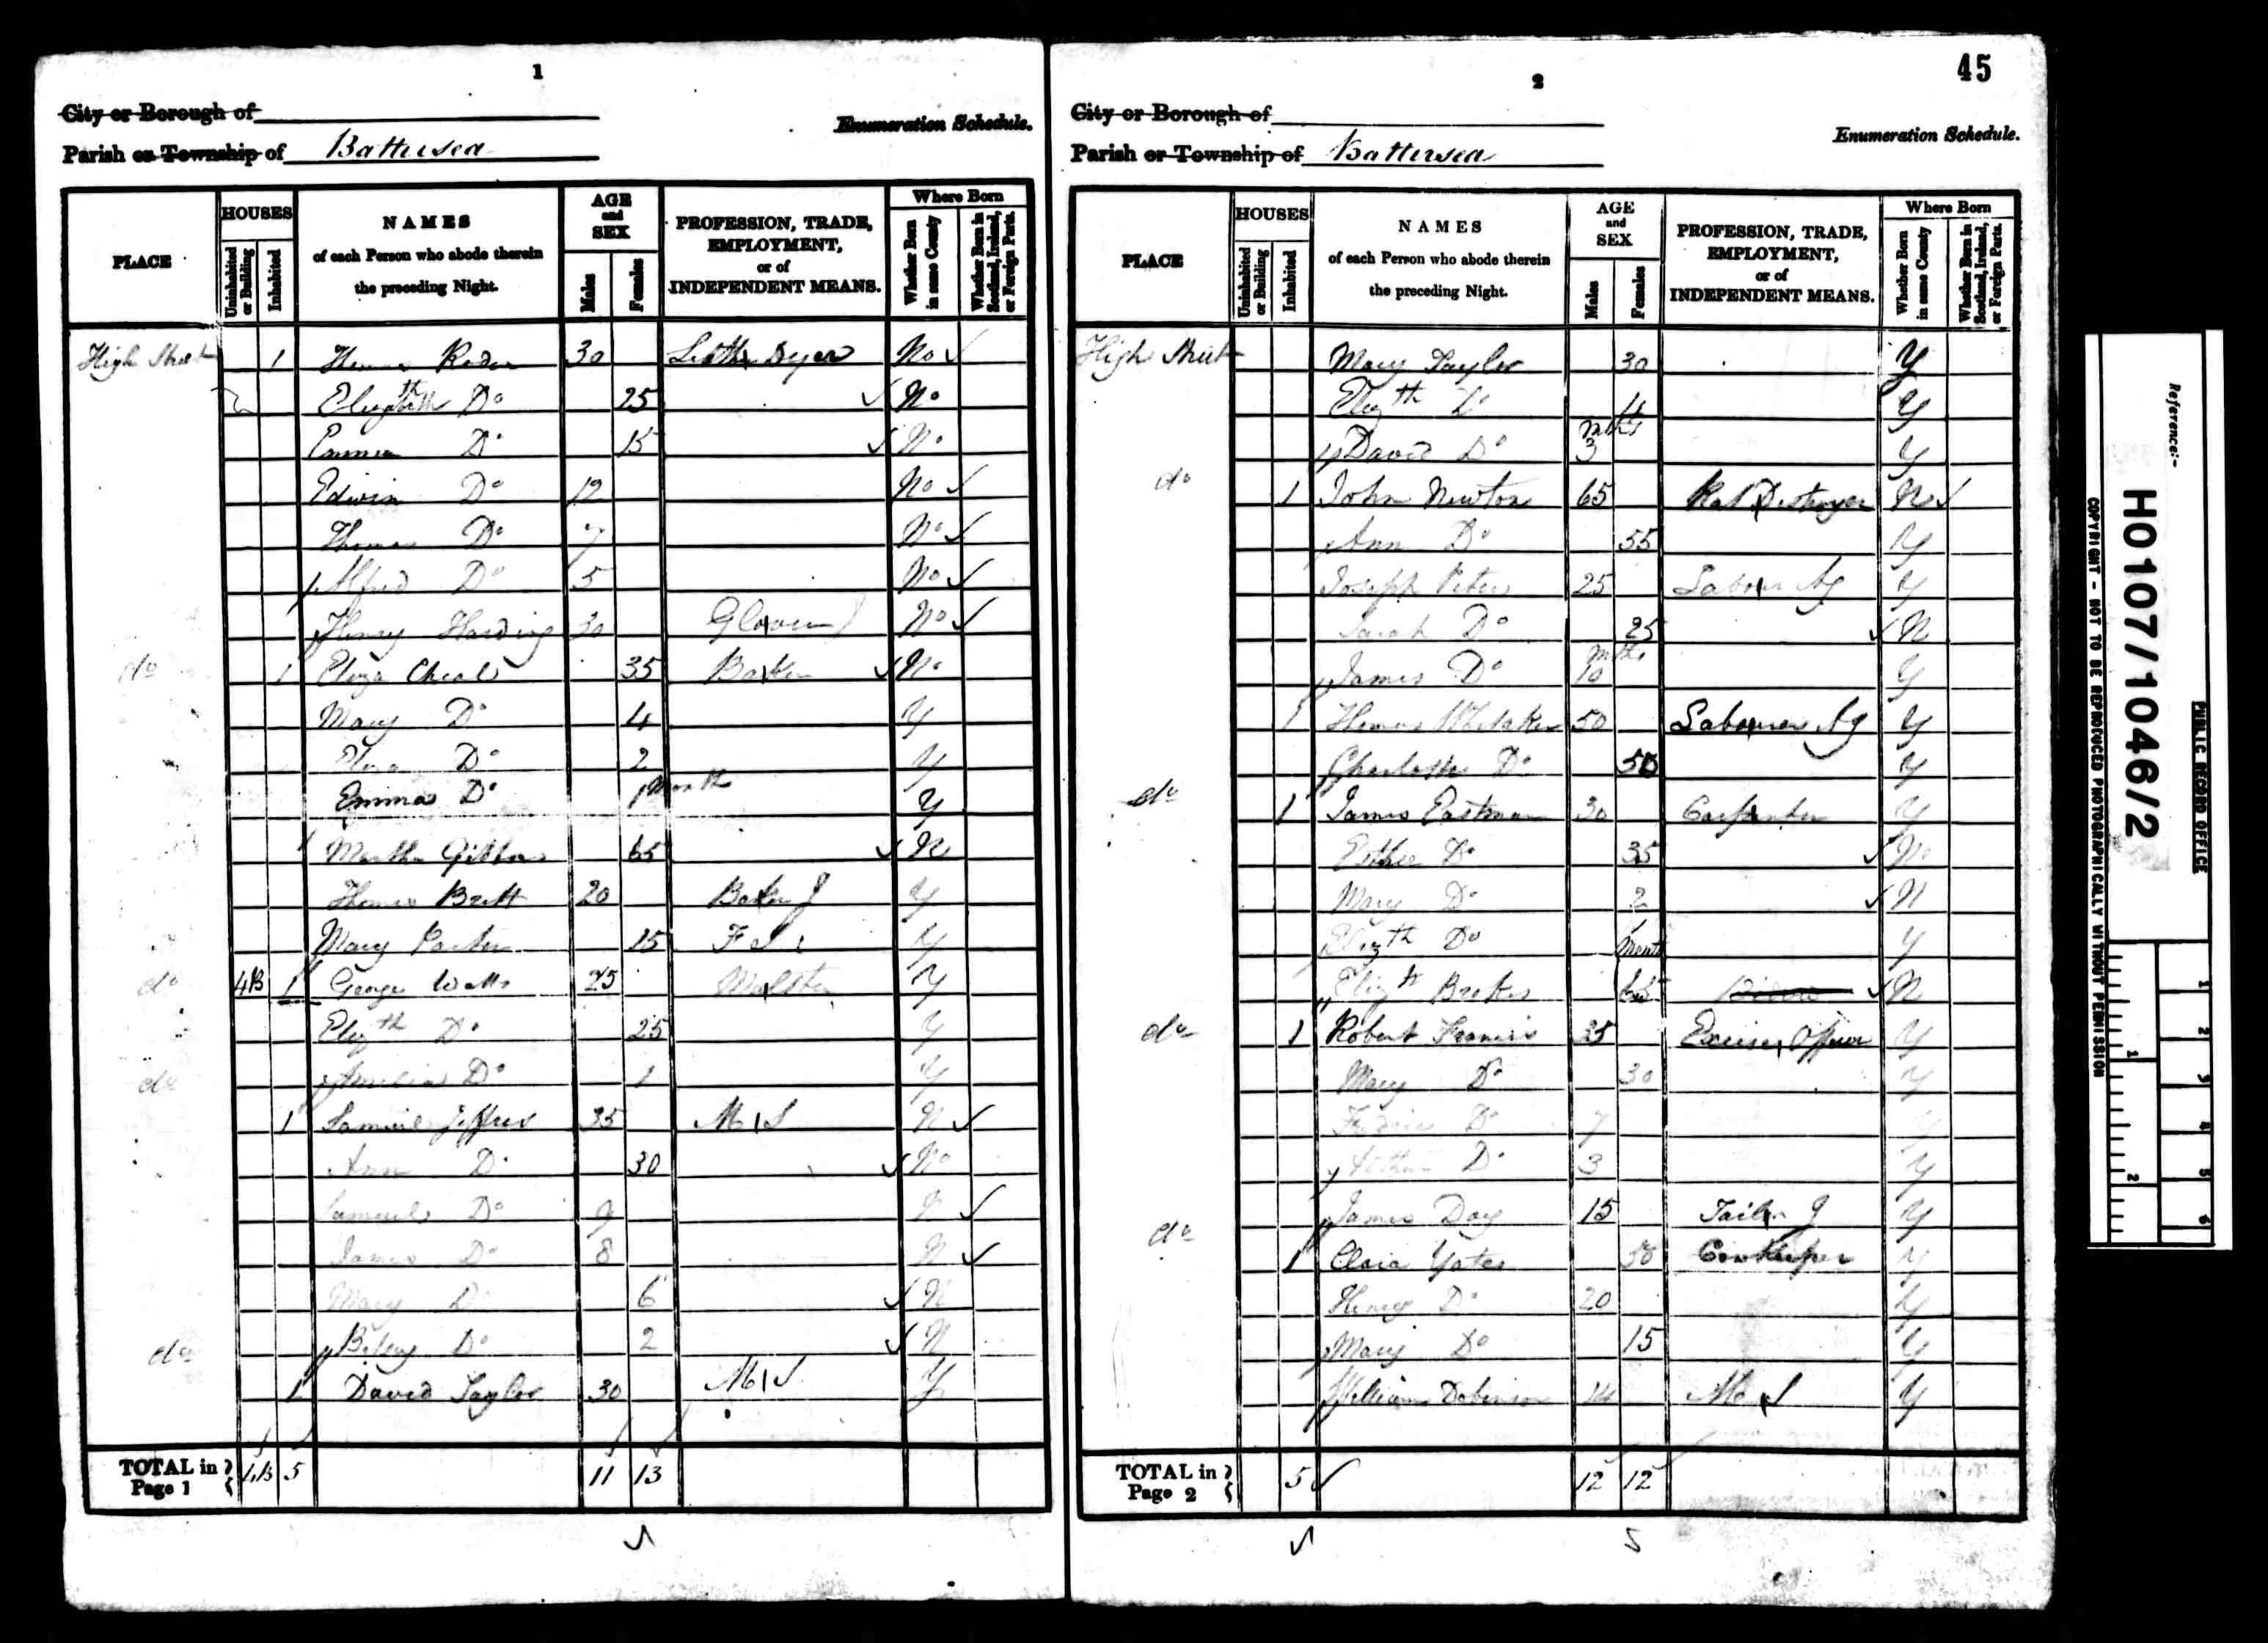 1
City or Borough of
Enumeration Schedule.
Parish or Township of Battersea
PLACE
HOUSES
Uninhabited or Building
Inhabited
NAMES
of each Person who abode therein
the preceding Night.
AGE
and
SEX
Males
Females
PROFESSION, TRADE,
EMPLOYMENT,
or of
INDEPENDENT MEANS.
Where Born
Whether Born in same County
Whether Born in Scotland, Ireland, or Foreign Parts.
High Street 1 30 Dyer No
Elizabeth Do 25 No
Emma Do 15 No
Edwin Do 12 No
Thomas Do 7 No
Alfred Do 5 No
Henry Harding 30 No
do 1 Eliza Cheal 35 Baker No
Mary Do 4 Y
Eliza Do 2 Y
Emma Do 1 Month Y
Martha 65 N
Thomas Brett 20 Baker J Y
Mary 15 F S Y
do 4B 1 George Watts 25 Y
Elizth Do 25 Y
do Do 1 Y
1 Samuel 35 M S N
Ann Do 30 No
Samuel Do 9 N
James Do 8 N
Mary Do 6 N
Betsy Do 2 N
do 1 David Taylor 30 M S Y
TOTAL in Page 1 4B 5 11 13
2
45
City or Borough of
Enumeration Schedule.
Parish or Township of Battersea
PLACE
HOUSES
Uninhabited or Building
Inhabited
NAMES
of each Person who abode therein
the preceding Night.
AGE
and
SEX
Males
Females
PROFESSION, TRADE,
EMPLOYMENT,
or of
INDEPENDENT MEANS.
Where Born
Whether Born in same County
Whether Born in Scotland, Ireland, or Foreign Parts.
High Street Mary Taylor 30 Y
Elizth Do 4 Y
David Do 3 mths Y
do 1 John Newton 65 Rat Destroyer No
Ann Do 55 Y
Joseph Peters 25 Labour Ag Y
Sarah Do 25 N
James Do 10 mths Y
1 Thomas 50 Labourer Ag Y
Charlotte Do 50 Y
do 1 James Eastman 30 Carpenter Y
Esther Do 35 No
Mary Do 2 N
Elizth Do 1 Month Y
Elizth 65 N
do 1 Robert Francis 35 Excise Officer Y
Mary Do 30 Y
Do 7 Y
Arthur Do 3 Y
James Day 15 Tailor J Y
do 1 Clara Yates 50 Cowkeeper Y
Henry Do 20 Y
Mary Do 15 Y
William 14 M S Y
TOTAL in Page 2 5 12 12
Reference:-
HO107/1046/2
PUBLIC RECORD OFFICE
COPYRIGHT - NOT TO BE REPRODUCED PHOTOGRAPHICALLY WITHOUT PERMISSION
1
2
3
4
5
6
1
2